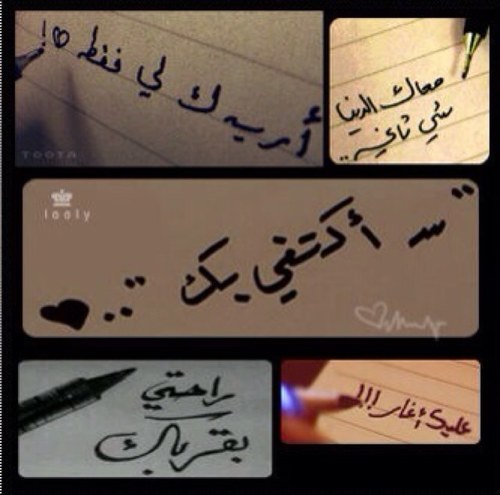 أريدك لي فقط !
TOOTA
معاك الدنيا
شي ثاني ..
looly
سـ أكتفي بك ..
راحتي
بقربك
عليك أغار !!!